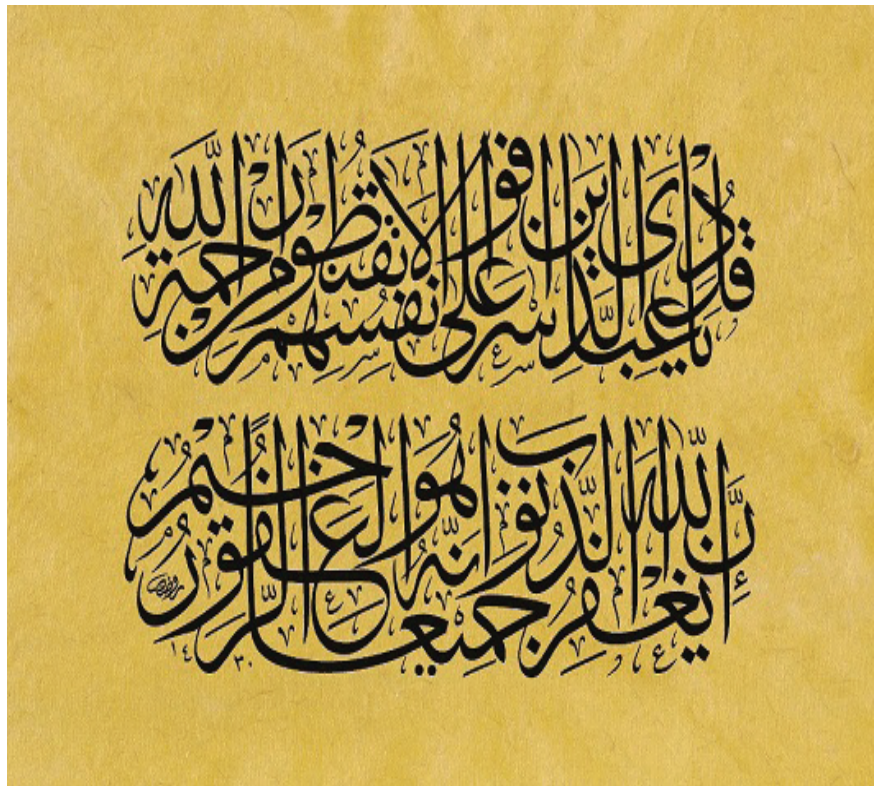 قُلْ يَا عِبَادِيَ الَّذِينَ أَسْرَفُوا عَلَى أَنفُسِهِمْ لَا تَقْنَطُوا مِن رَّحْمَةِ اللَّهِ
إِنَّ اللَّهَ يَغْفِرُ الذُّنُوبَ جَمِيعًا إِنَّهُ هُوَ الْغَفُورُ الرَّحِيمُ
١٤٣٠